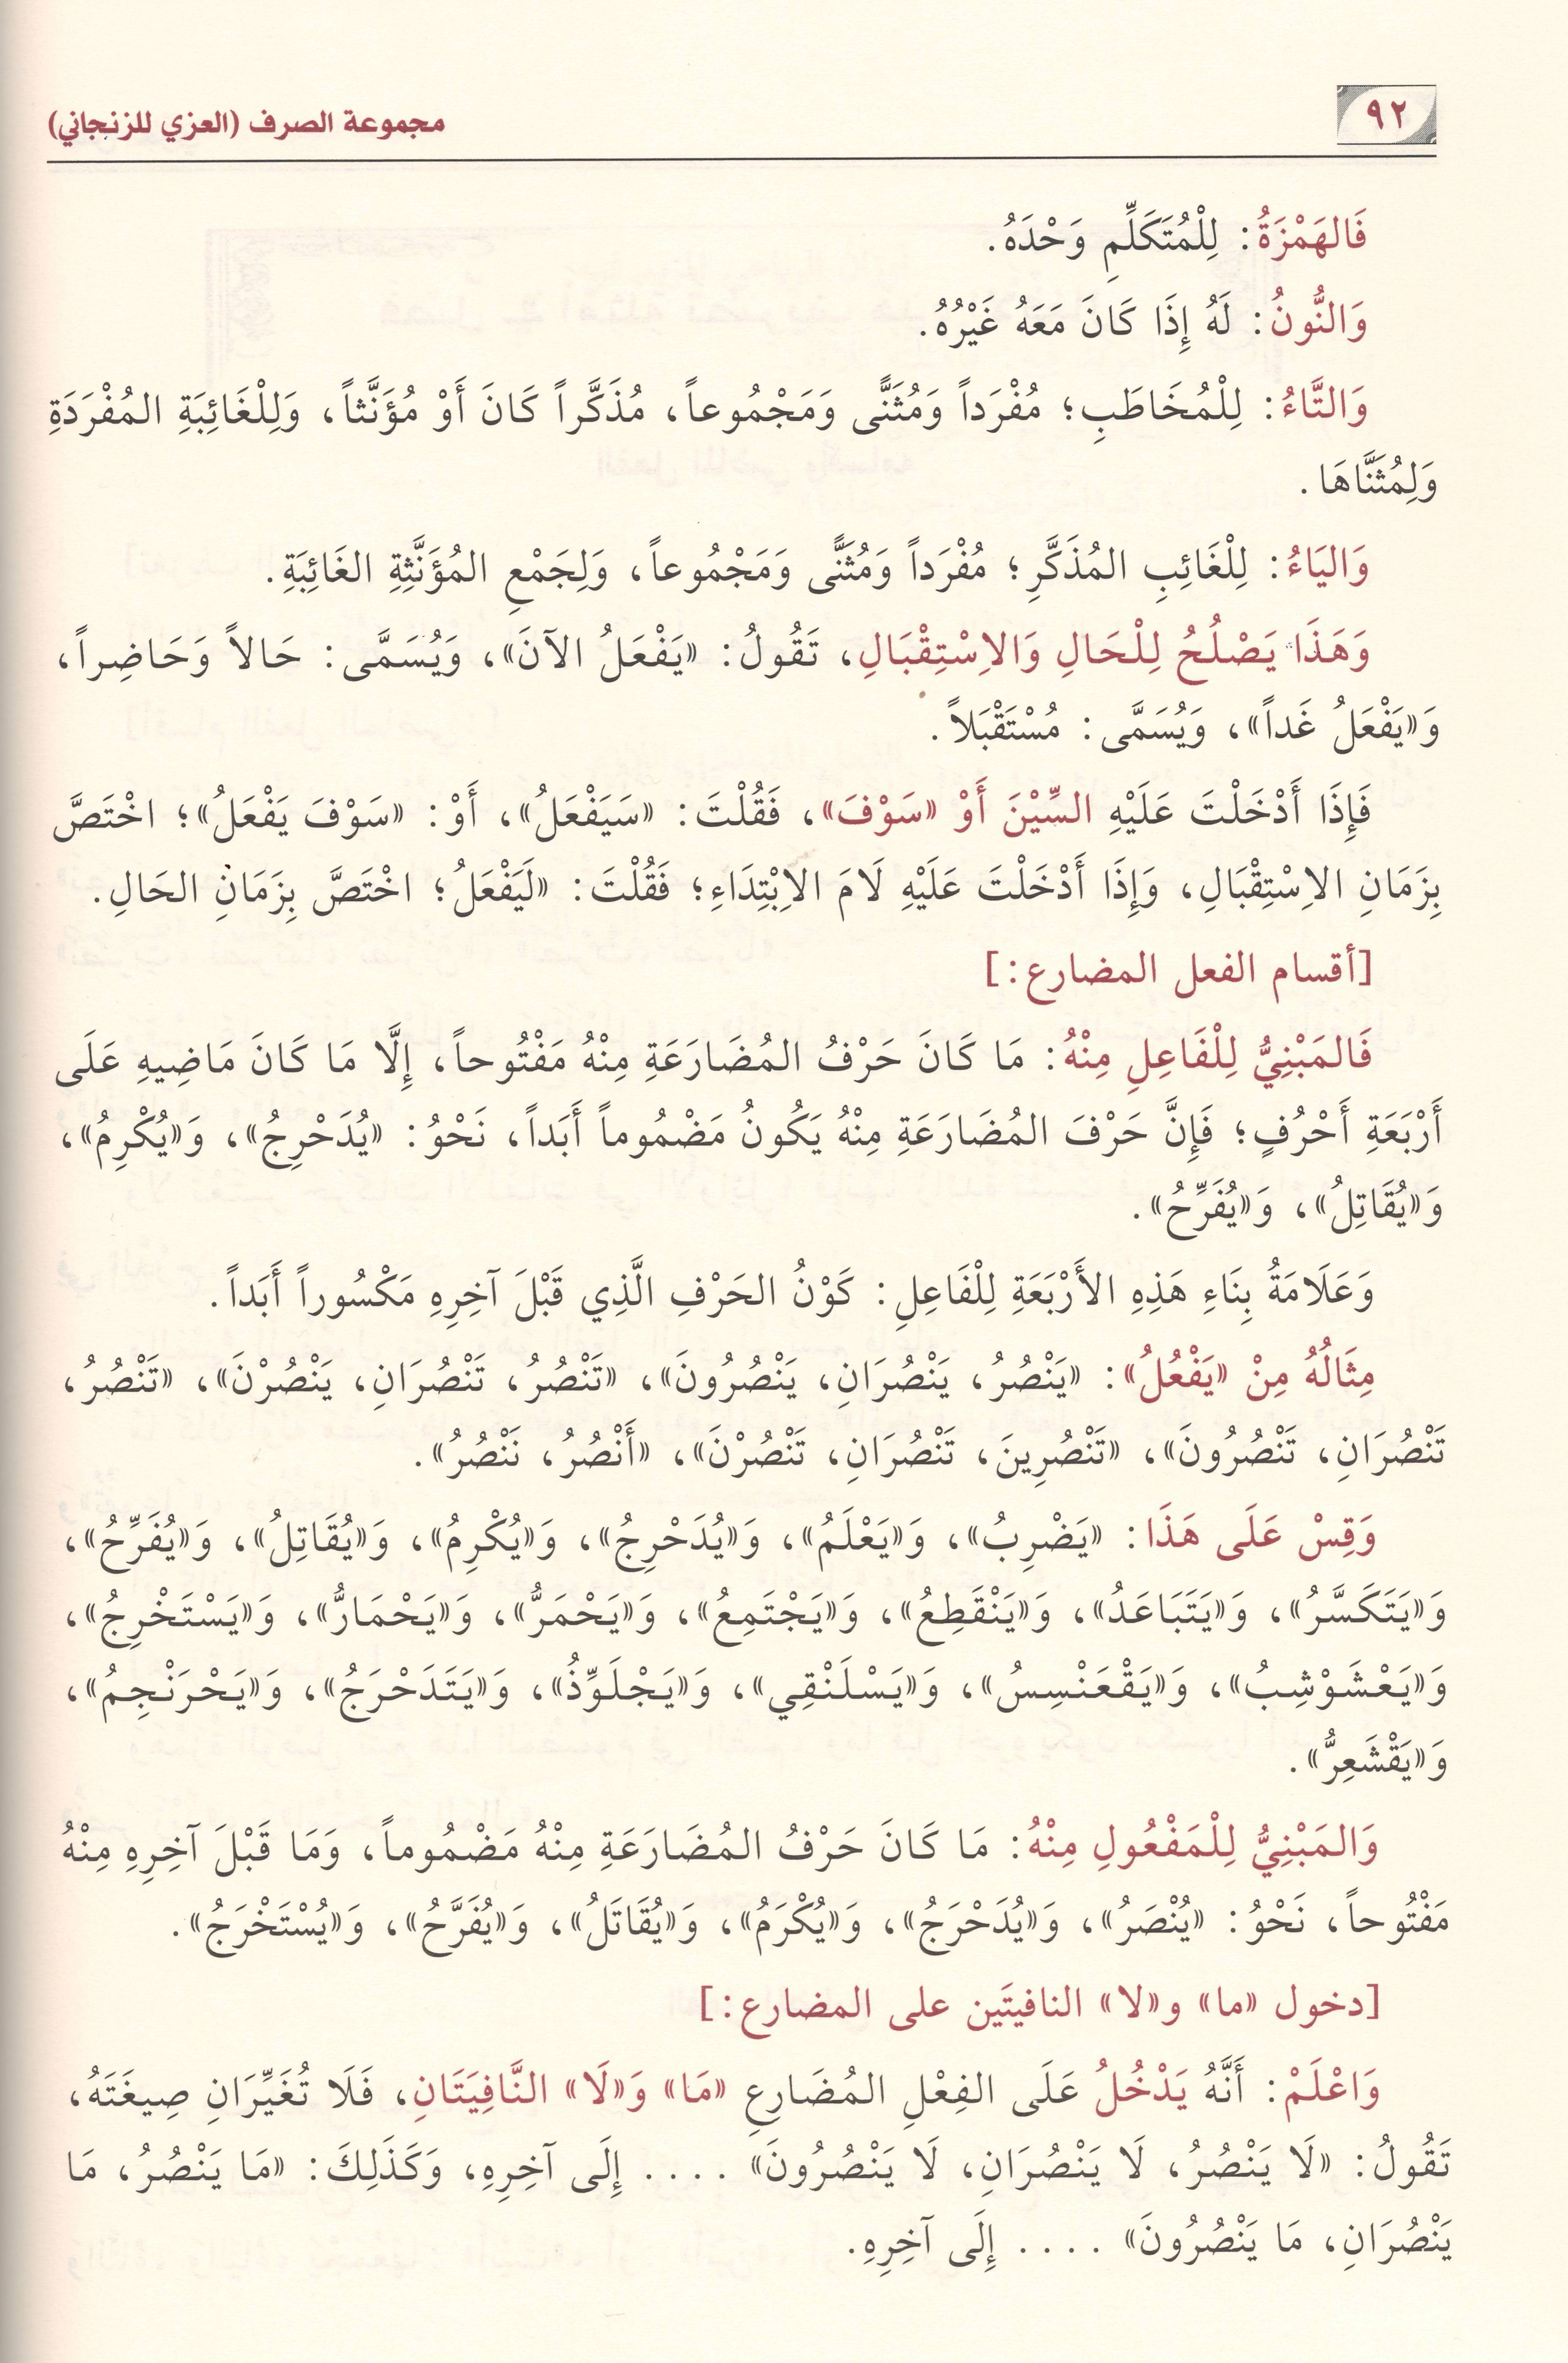 ٩٢
مجموعة الصرف (العزي للزنجاني)
فَالهَمْزَةُ: لِلْمُتَكَلِّمِ وَحْدَهُ.
وَالنُّونُ: لَهُ إِذَا كَانَ مَعَهُ غَيْرُهُ.
وَالتَّاءُ: لِلْمُخَاطَبِ؛ مُفْرَداً وَمُثَنًّى وَمَجْمُوعاً، مُذَكَّراً كَانَ أَوْ مُؤَنَّثاً، وَلِلْغَائِبَةِ المُفْرَدَةِ
وَلِمُثَنَّاهَا.
وَاليَاءُ: لِلْغَائِبِ المُذَكَّرِ؛ مُفْرَداً وَمُثَنًّى وَمَجْمُوعاً، وَلِجَمْعِ المُؤَنَّثِةِ الغَائِبَةِ.
وَهَذَا يَصْلُحُ لِلْحَالِ وَالاِسْتِقْبَالِ، تَقُولُ: «يَفْعَلُ الآنَ»، وَيُسَمَّى: حَالاً وَحَاضِراً،
وَ«يَفْعَلُ غَداً»، وَيُسَمَّى: مُسْتَقْبَلاً.
فَإِذَا أَدْخَلْتَ عَلَيْهِ السِّيْنَ أَوْ «سَوْفَ»، فَقُلْتَ: «سَيَفْعَلُ»، أَوْ: «سَوْفَ يَفْعَلُ»؛ اخْتَصَّ
بِزَمَانِ الاِسْتِقْبَالِ، وَإِذَا أَدْخَلْتَ عَلَيْهِ لَامَ الاِبْتِدَاءِ؛ فَقُلْتَ: «لَيَفْعَلُ؛ اخْتَصَّ بِزَمَانِ الحَالِ.
[أقسام الفعل المضارع:]
فَالمَبْنِيُّ لِلْفَاعِلِ مِنْهُ: مَا كَانَ حَرْفُ المُضَارَعَةِ مِنْهُ مَفْتُوحاً، إِلَّا مَا كَانَ مَاضِيهِ عَلَى
أَرْبَعَةِ أَحْرُفٍ؛ فَإِنَّ حَرْفَ المُضَارَعَةِ مِنْهُ يَكُونُ مَضْمُوماً أَبَداً، نَحْوُ: «يُدَحْرِجُ»، وَ«يُكْرِمُ»،
وَ«يُقَاتِلُ»، وَ«يُفَرِّحُ».
وَعَلَامَةُ بِنَاءِ هَذِهِ الأَرْبَعَةِ لِلْفَاعِلِ: كَوْنُ الحَرْفِ الَّذِي قَبْلَ آخِرِهِ مَكْسُوراً أَبَداً.
مِثَالُهُ مِنْ «يَفْعُلُ»: «يَنْصُرُ، يَنْصُرَانِ، يَنْصُرُونَ»، «تَنْصُرُ، تَنْصُرَانِ، يَنْصُرْنَ»، «تَنْصُرُ،
تَنْصُرَانِ، تَنْصُرُونَ»، «تَنْصُرِينَ، تَنْصُرَانِ، تَنْصُرْنَ»، «أَنْصُرُ، نَنْصُرُ».
وَقِسْ عَلَى هَذَا: «يَضْرِبُ»، وَ«يَعْلَمُ»، وَ«يُدَحْرِجُ»، وَ«يُكْرِمُ»، وَ«يُقَاتِلُ»، وَ«يُفَرِّحُ»،
وَ«يَتَكَسَّرُ»، وَ«يَتَبَاعَدُ»، وَ«يَنْقَطِعُ»، وَ«يَجْتَمِعُ»، وَ«يَحْمَرُّ»، وَ«يَحْمَارُّ»، وَ«يَسْتَخْرِجُ»،
وَ«يَعْشَوْشِبُ»، وَ«يَقْعَنْسِسُ»، وَ«يَسْلَنْقِي»، وَ«يَجْلَوِّذُ»، وَ«يَتَدَحْرَجُ»، وَ«يَحْرَنْجِمُ»،
وَ«يَقْشَعِرُّ».
وَالمَبْنِيُّ لِلْمَفْعُولِ مِنْهُ: مَا كَانَ حَرْفُ المُضَارَعَةِ مِنْهُ مَضْمُوماً، وَمَا قَبْلَ آخِرِهِ مِنْهُ
مَفْتُوحاً، نَحْوُ: «يُنْصَرُ»، وَ«يُدَحْرَجُ»، وَ«يُكْرَمُ»، وَ«يُقَاتَلُ»، وَ«يُفَرَّحُ»، وَ«يُسْتَخْرَجُ».
[دخول «ما» و«لا» النافيتَين على المضارع:]
وَاعْلَمْ: أَنَّهُ يَدْخُلُ عَلَى الفِعْلِ المُضَارِعِ «مَا» وَ«لَا» النَّافِيَتَانِ، فَلَا تُغَيِّرَانِ صِيغَتَهُ،
تَقُولُ: «لَا يَنْصُرُ، لَا يَنْصُرَانِ، لَا يَنْصُرُونَ» .... إِلَى آخِرِهِ، وَكَذَلِكَ: «مَا يَنْصُرُ، مَا
يَنْصُرَانِ، مَا يَنْصُرُونَ» .... إِلَى آخِرِهِ.